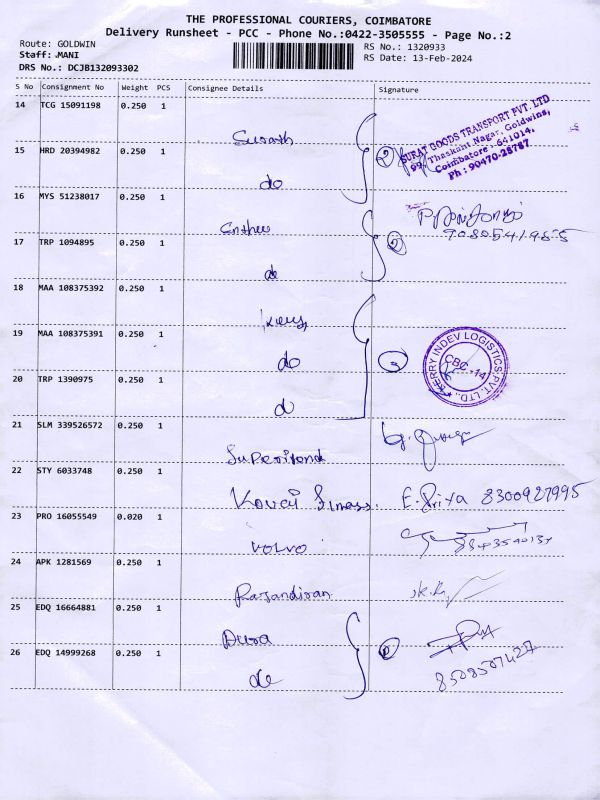 THE PROFESSIONAL COURIERS, COIMBATORE
Delivery Runsheet - PCC - Phone No.:0422-3505555 - Page No.:2
Route: GOLDWIN
RS No.: 1320933
Staff: MANI
RS Date: 13-Feb-2024
DRS No.: DCJB132093302
S No Consignment No Weight PCS Consignee Details Signature
14 TCG 15091198 0.250 1
SURAT GOODS TRANSPORT PVT. LTD
Thaskant Nagar, Goldwins,
Coimbatore - 641014.
Ph : 90470-28787
15 HRD 20394982 0.250 1
do
2
16 MYS 51238017 0.250 1
17 TRP 1094895 0.250 1
do
2
18 MAA 108375392 0.250 1
19 MAA 108375391 0.250 1
do
3
KERRY INDEV LOGISTICS PVT. LTD.
CBE -14
20 TRP 1390975 0.250 1
21 SLM 339526572 0.250 1
22 STY 6033748 0.250 1
Kovai E. Priya 8300927995
23 PRO 16055549 0.020 1
VOLVO
24 APK 1281569 0.250 1
Rajandiran
25 EDQ 16664881 0.250 1
Dura
26 EDQ 14999268 0.250 1
do
8508507427